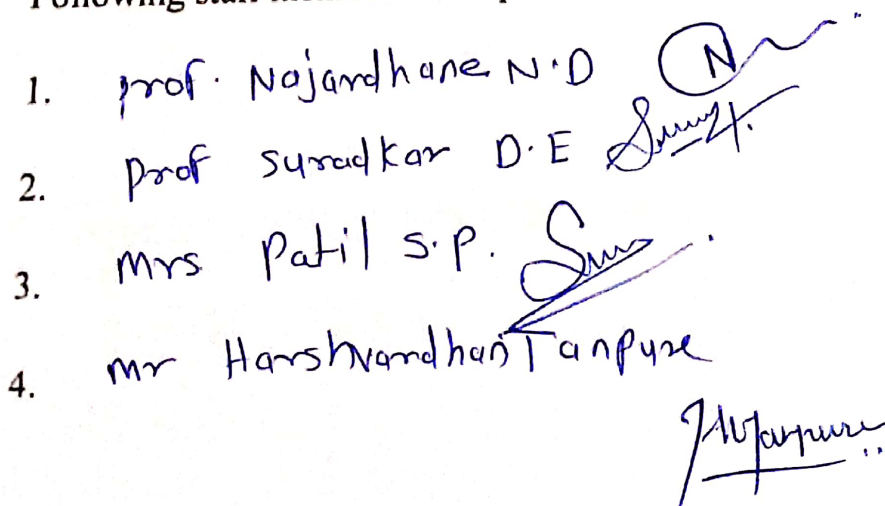 Following staff
1. prof. Najardhane N.D N
2. Prof Suradkar D.E
3. Mrs Patil S.P.
4. Mr Harshvardhan Tanpure